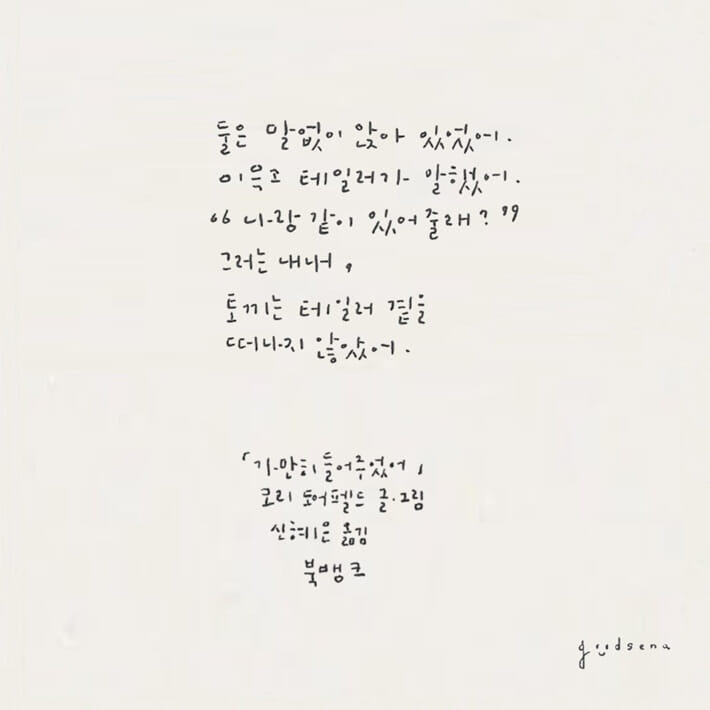 둘은 말없이 앉아 있었어.
이윽고 테일러가 말했어.
“나랑 같이 있어 줄래?”
그러는 내내,
토끼는 테일러 곁을
떠나지 않았어.
「가만히 들어주었어」
코리 도어펠드 글·그림
신혜은 옮김
북뱅크
goodsena